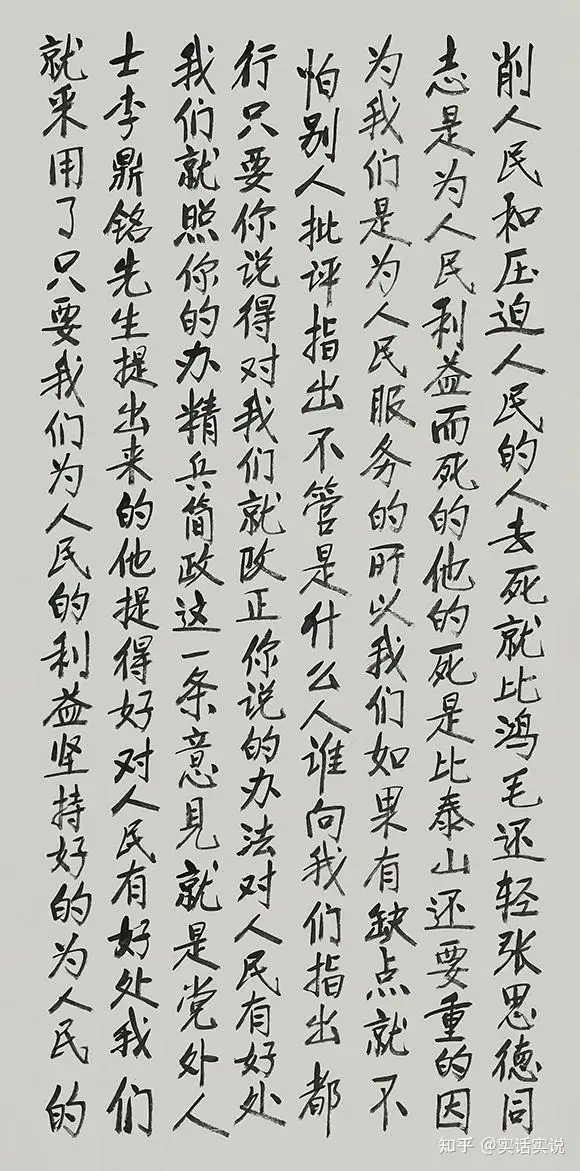 削人民和压迫人民的人去死就比鸿毛还轻张思德同
志是为人民利益而死的他的死是比泰山还要重的因
为我们是为人民服务的所以我们如果有缺点就不
怕别人批评指出不管是什么人谁向我们指出都
行只要你说得对我们就改正你说的办法对人民有好处
我们就照你的办精兵简政这一条意见就是党外人
士李鼎铭先生提出来的他提得好对人民有好处我们
就采用了只要我们为人民的利益坚持好的为人民的
知乎 @实话实说